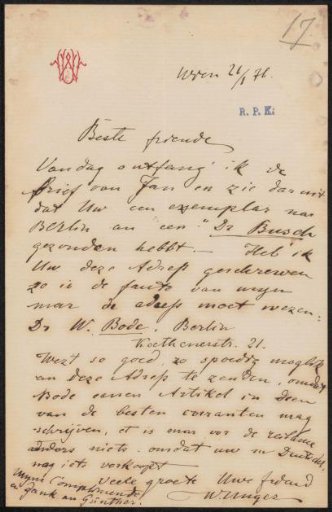 17
W
Wien 21/1 78.
R. P. K.
Beste friende
Vandag ontfang ik de
Brief van Jan en zie daruit
dat Uw een exemplar nae
Berlin an een "Dr Busch
gezonden hebbt. — Heb ik
Uw deze Adress geschrewen
zo is de fauto van myn
mar de adress moet wezen:
Dr W. Bode. Berlin
21.
Weest so goed, zo spoedig moglik
an deze Adress te zenden, omdat
Bode eenen Artikel in een
van de besten couranten mag
schrijven, et is maar vor de reclame
anders niets. omdat uw in Deutschl.
nag iets verkoopt
veele groete Uwe friend
W Unger
Myne Complimente
en Dank an Günther.